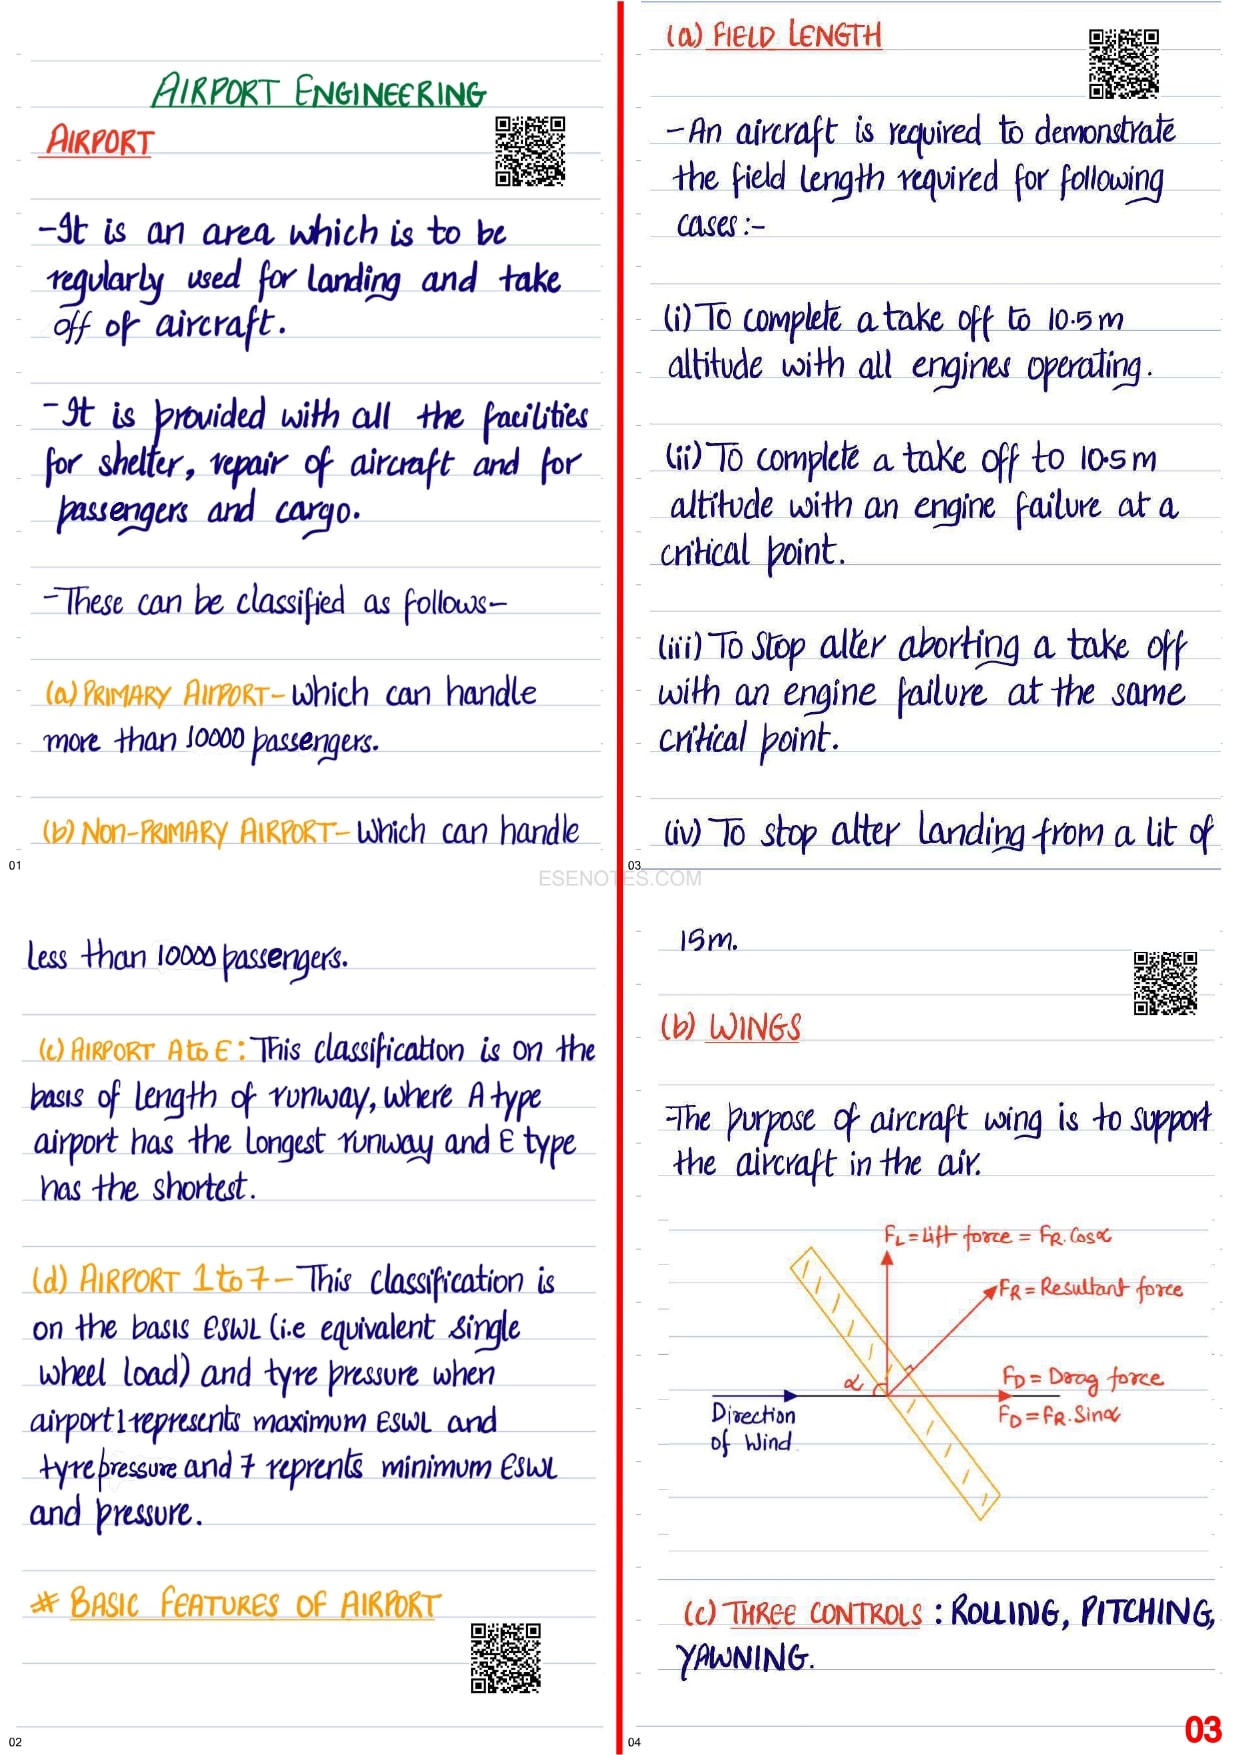 AIRPORT ENGINEERING
AIRPORT
-It is an area which is to be
regularly used for landing and take
off of aircraft.
-It is provided with all the facilities
for shelter, repair of aircraft and for
passengers and cargo.
-These can be classified as follows-
(a) PRIMARY AIRPORT- which can handle
more than 10000 passengers.
(b) NON-PRIMARY AIRPORT- Which can handle
01
less than 10000 passengers.
(c) AIRPORT A to E: This classification is on the
basis of length of runway, where A type
airport has the longest runway and E type
has the shortest.
(d) AIRPORT 1 to 7- This classification is
on the basis ESWL (i.e equivalent single
wheel load) and tyre pressure when
airport 1 represents maximum ESWL and
tyre pressure and 7 reprents minimum ESWL
and pressure.
# BASIC FEATURES OF AIRPORT
02
(a) FIELD LENGTH
-An aircraft is required to demonstrate
the field length required for following
cases:-
(i) To complete a take off to 10.5m
altitude with all engines operating.
(ii) To complete a take off to 10.5m
altitude with an engine failure at a
critical point.
(iii) To stop alter aborting a take off
with an engine failure at the same
critical point.
(iv) To stop alter landing from a lit of
03
ESENOTES.COM
15m.
(b) WINGS
-The purpose of aircraft wing is to support
the aircraft in the air.
FL = Lift force = FR.Cosα
FR = Resultant force
α
FD = Drag force
FD = FR.Sinα
Direction
of Wind
(c) THREE CONTROLS : ROLLING, PITCHING,
YAWNING.
03
04